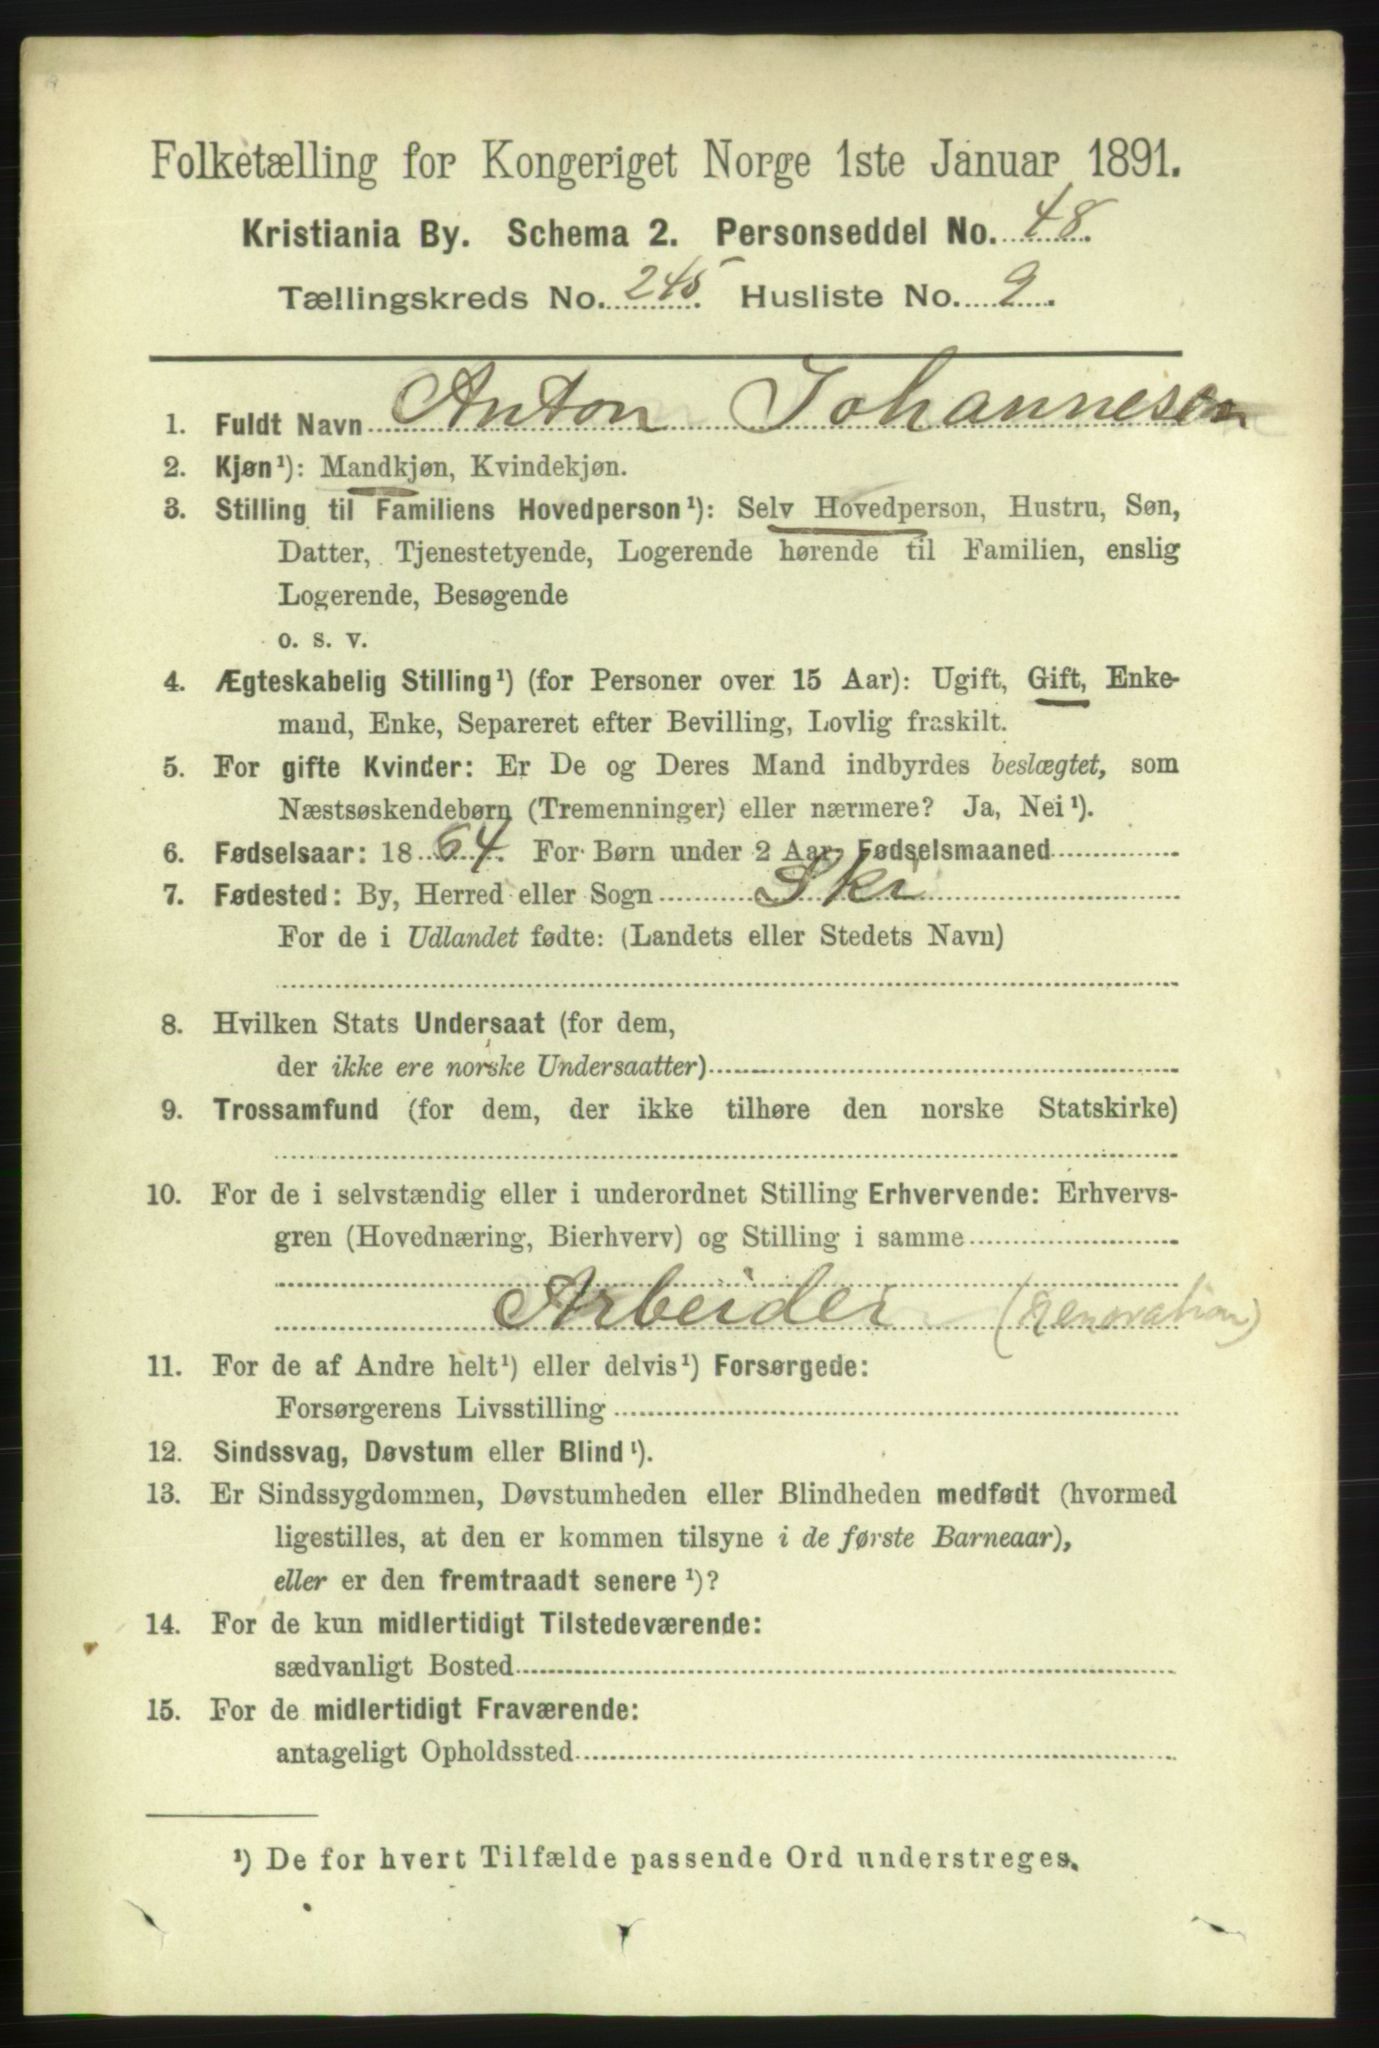 Folketælling for Kongeriget Norge 1ste Januar 1891.
Kristiania By. Schema 2. Personseddel No. 48.
Tællingskreds No. 245. Husliste No. 9.
1. Fuldt Navn Anton Johannesen
2. Kjøn¹): Mandkjøn, Kvindekjøn.
3. Stilling til Familiens Hovedperson¹): Selv Hovedperson, Hustru, Søn,
Datter, Tjenestetyende, Logerende hørende til Familien, enslig
Logerende, Besøgende
o. s. v.
4. Ægteskabelig Stilling¹) (for Personer over 15 Aar): Ugift, Gift, Enke-
mand, Enke, Separeret efter Bevilling, Lovlig fraskilt.
5. For gifte Kvinder: Er De og Deres Mand indbyrdes beslægtet, som
Næstsøskendebørn (Tremenninger) eller nærmere? Ja, Nei¹).
6. Fødselsaar: 1864. For Børn under 2 Aar, Fødselsmaaned
7. Fødested: By, Herred eller Sogn Ski
For de i Udlandet fødte: (Landets eller Stedets Navn)
8. Hvilken Stats Undersaat (for dem,
der ikke ere norske Undersaatter)
9. Trossamfund (for dem, der ikke tilhøre den norske Statskirke)
10. For de i selvstændig eller i underordnet Stilling Erhvervende: Erhvervs-
gren (Hovednæring, Bierhverv) og Stilling i samme
Arbeider (renovation)
11. For de af Andre helt¹) eller delvis¹) Forsørgede:
Forsørgerens Livsstilling
12. Sindssvag, Døvstum eller Blind¹).
13. Er Sindssygdommen, Døvstumheden eller Blindheden medfødt (hvormed
ligestilles, at den er kommen tilsyne i de første Barneaar),
eller er den fremtraadt senere¹)?
14. For de kun midlertidigt Tilstedeværende:
sædvanligt Bosted
15. For de midlertidigt Fraværende:
antageligt Opholdssted
¹) De for hvert Tilfælde passende Ord understreges.